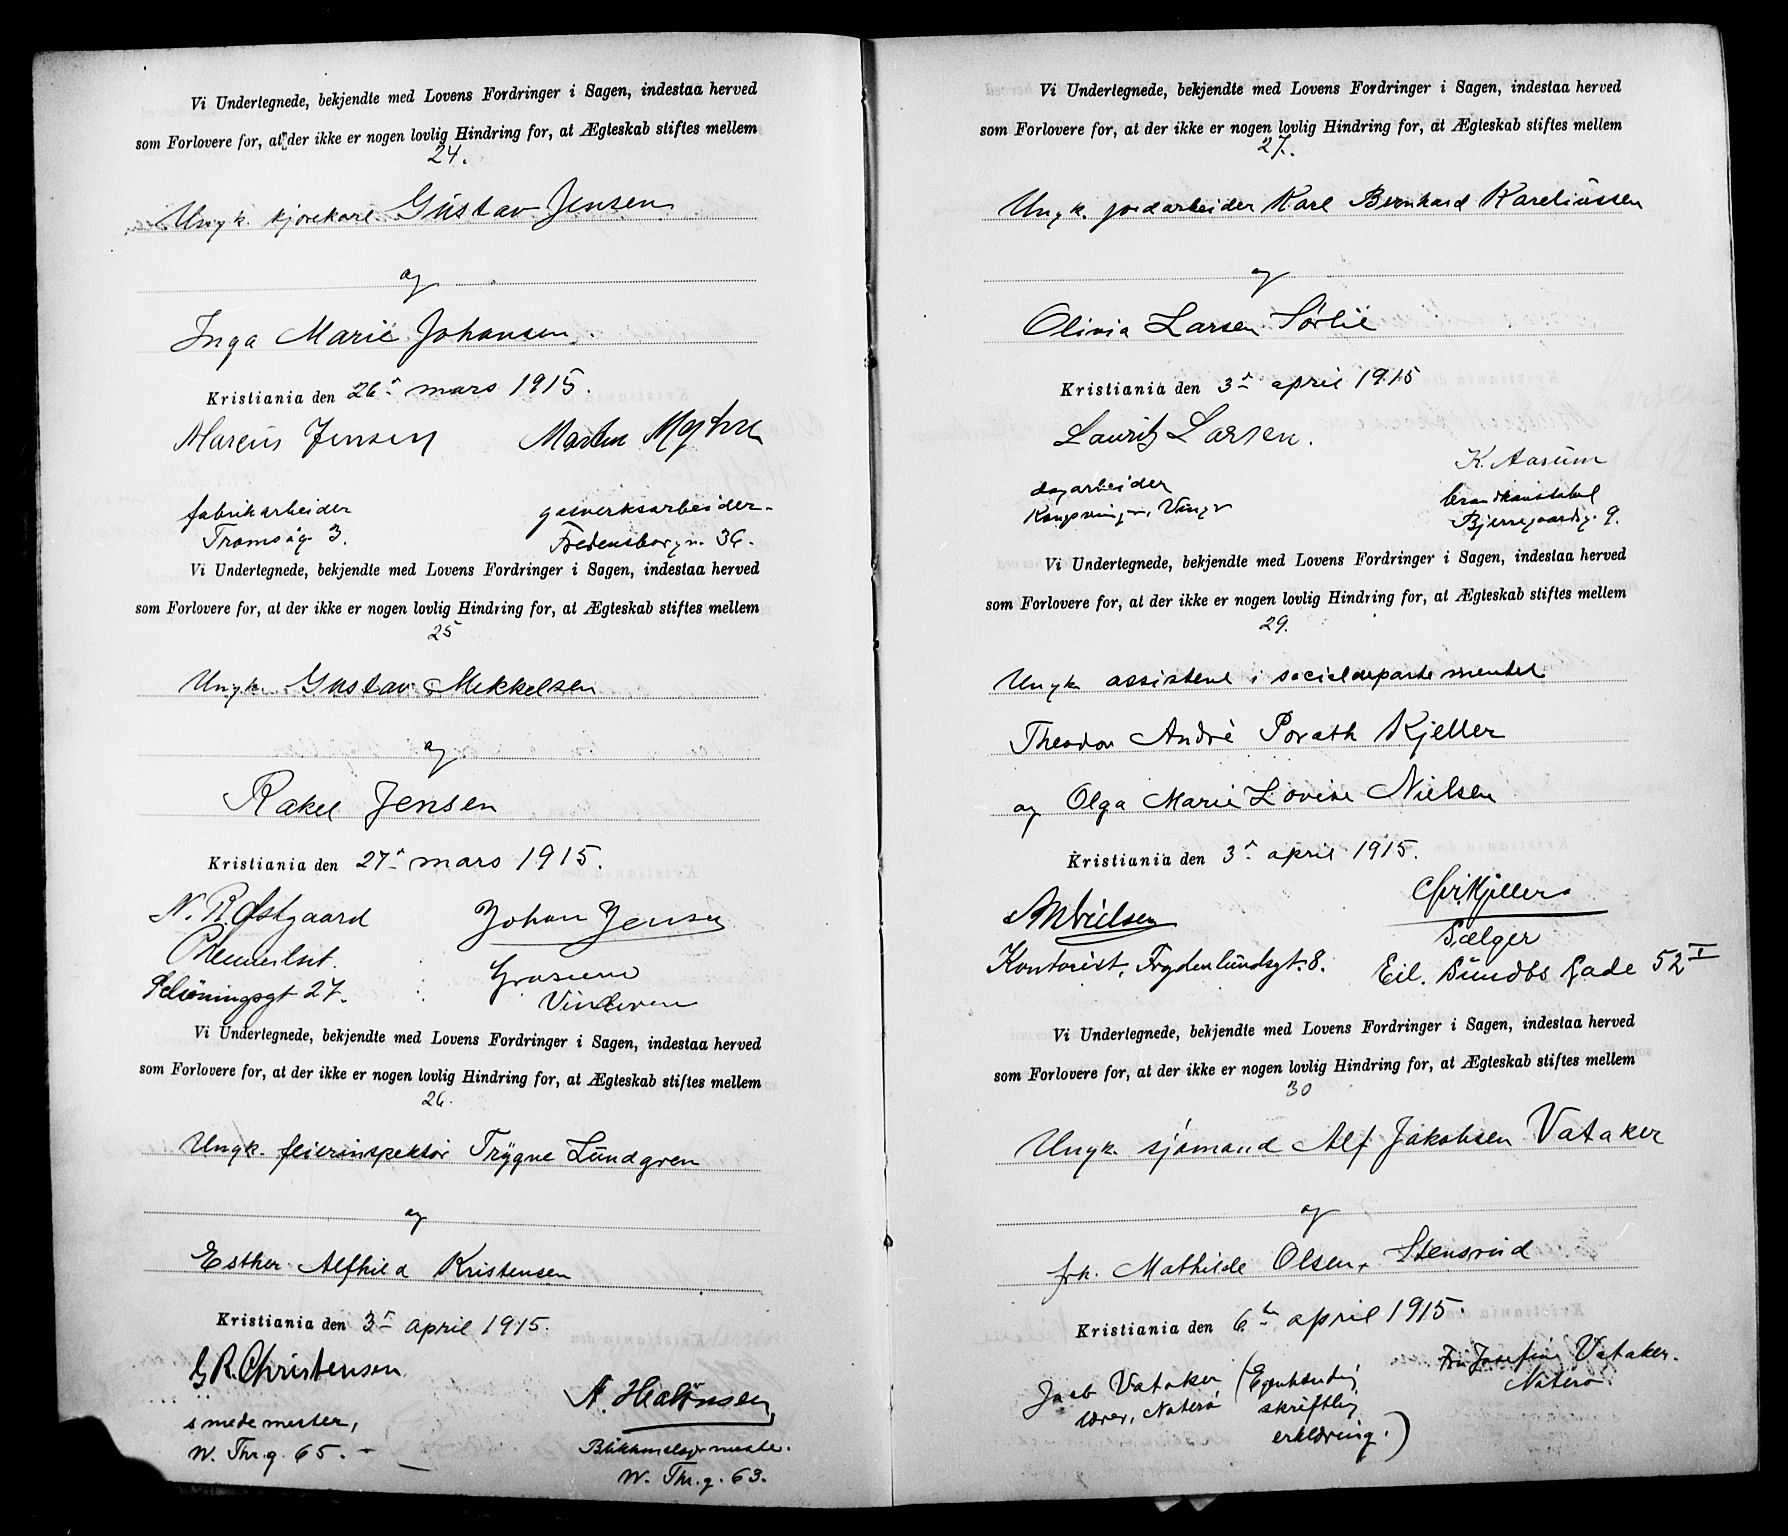 Vi Undertegnede, bekjendte med Lovens Fordringer i Sagen, indestaa herved
som Forlovere for, at der ikke er nogen lovlig Hindring for, at Ægteskab stiftes mellem
24.
Ungk. kjørekarl Gustav Jensen
og
Inga Marie Johansen.
Kristiania den 26de mars 1915.
Marcus Jensen Martin
fabrikarbeider gasverksarbeider
Tromsøg 3. Fredensborgv. 36.
Vi Undertegnede, bekjendte med Lovens Fordringer i Sagen, indestaa herved
som Forlovere for, at der ikke er nogen lovlig Hindring for, at Ægteskab stiftes mellem
25
Ungk. Gustav Mikkelsen
og
Rakel Jensen
Kristiania den 27de mars 1915.
N. R. Østgaard Johan Jensen
Schøningsgt 27. Vinderen
Vi Undertegnede, bekjendte med Lovens Fordringer i Sagen, indestaa herved
som Forlovere for, at der ikke er nogen lovlig Hindring for, at Ægteskab stiftes mellem
26.
Ungk. feierinspektør Trygve Lundgren
og
Esther Alfhild Kristensen
Kristiania den 3de april 1915.
G R. Christensen
smedemester, Blikkenslagermester.
W. Thr.g. 65. W. Thr.g. 63.
Vi Undertegnede, bekjendte med Lovens Fordringer i Sagen, indestaa herved
som Forlovere for, at der ikke er nogen lovlig Hindring for, at Ægteskab stiftes mellem
27.
Ungk. jordarbeider Karl Bernhard Kareliussen
og
Olivia Larsen Sørlie
Kristiania den 3de april 1915
Lauritz Larsen.
K. Aasum
dagarbeider brandkonstabel
Kongsvinger, Vinger Bjerregaardsg. 9.
Vi Undertegnede, bekjendte med Lovens Fordringer i Sagen, indestaa herved
som Forlovere for, at der ikke er nogen lovlig Hindring for, at Ægteskab stiftes mellem
29.
Ungk. assistent i socialdepartementet
Theodor André Porath Kjeller
og Olga Marie Lovise Nielsen
Kristiania den 3de april 1915.
Sælger
Kontorist, Frydenlundsgt. 8. Eil. Sundts Gade 52 I
Vi Undertegnede, bekjendte med Lovens Fordringer i Sagen, indestaa herved
som Forlovere for, at der ikke er nogen lovlig Hindring for, at Ægteskab stiftes mellem
30
Ungk. sjømand Alf Jakobsen Vataker
og
frk. Mathilde Olsen, Stensrud
Kristiania den 6te april 1915.
Jacob Vataker (Egenhændig Fru Josefine Vataker.
lærer, Nøterø skriftlig Nøterø.
erklæring.)